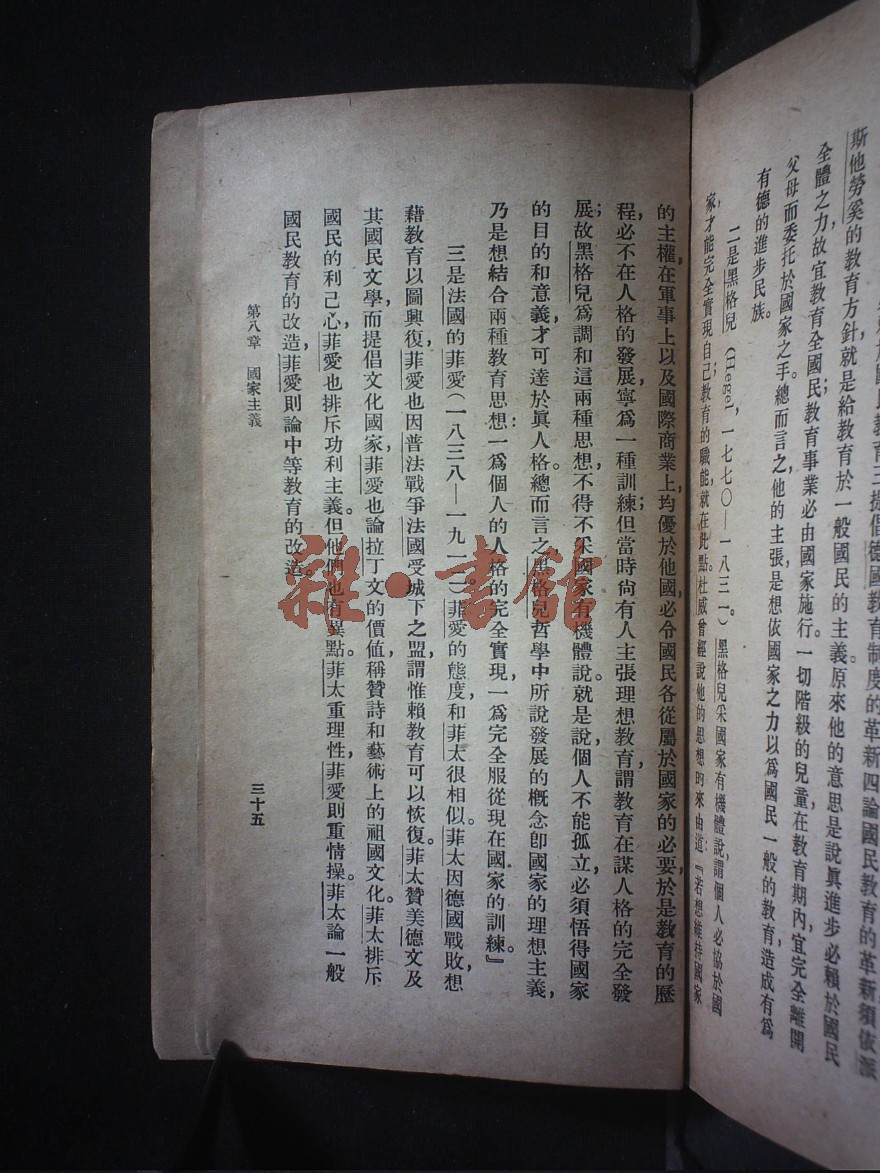 斯他勞奚的教育方針就是給教育於一般國民的主義。原來他的意思是說眞進步必賴於國民
全體之力故宜教育全國民教育事業必由國家施行。一切階級的兒童在教育期內宜完全離開
父母而委托於國家之手。總而言之他的主張是想依國家之力以爲國民一般的教育造成有爲
有德的進步民族。
二是黑格兒(Hegel, 一七七〇—一八三一。)黑格兒采國家有機體說,謂個人必協於國
家,才能完全實現自己;教育的職能,就在此點。杜威曾經說他的思想的來由道:『若想維持國家
的主權,在軍事上以及國際商業上,均優於他國,必令國民各從屬於國家的必要;於是教育的歷
程,必不在人格的發展,寧爲一種訓練;但當時尙有人主張理想教育,謂教育在謀人格的完全發
展;故黑格兒爲調和這兩種思想,不得不采國家有機體說。就是說,個人不能孤立,必須悟得國家
的目的和意義,才可達於眞人格。總而言之,黑格兒哲學中所說發展的概念,卽國家的理想主義,
乃是想結合兩種教育思想:一爲個人的人格的完全實現,一爲完全服從現在國家的訓練。』
三是法國的菲愛(一八三八—一九一二)。菲愛的態度,和菲太很相似。菲太因德國戰敗,想
藉教育以圖興復,菲愛也因普法戰爭,法國受城下之盟,謂惟賴教育可以恢復。菲太贊美德文及
其國民文學,而提倡文化國家,菲愛也論拉丁文的價値,稱贊詩和藝術上的祖國文化。菲太排斥
國民的利己心,菲愛也排斥功利主義。但他們也有異點。菲太重理性,菲愛則重情操。菲太論一般
國民教育的改造,菲愛則論中等教育的改造。
第八章 國家主義
三十五
雜·書館